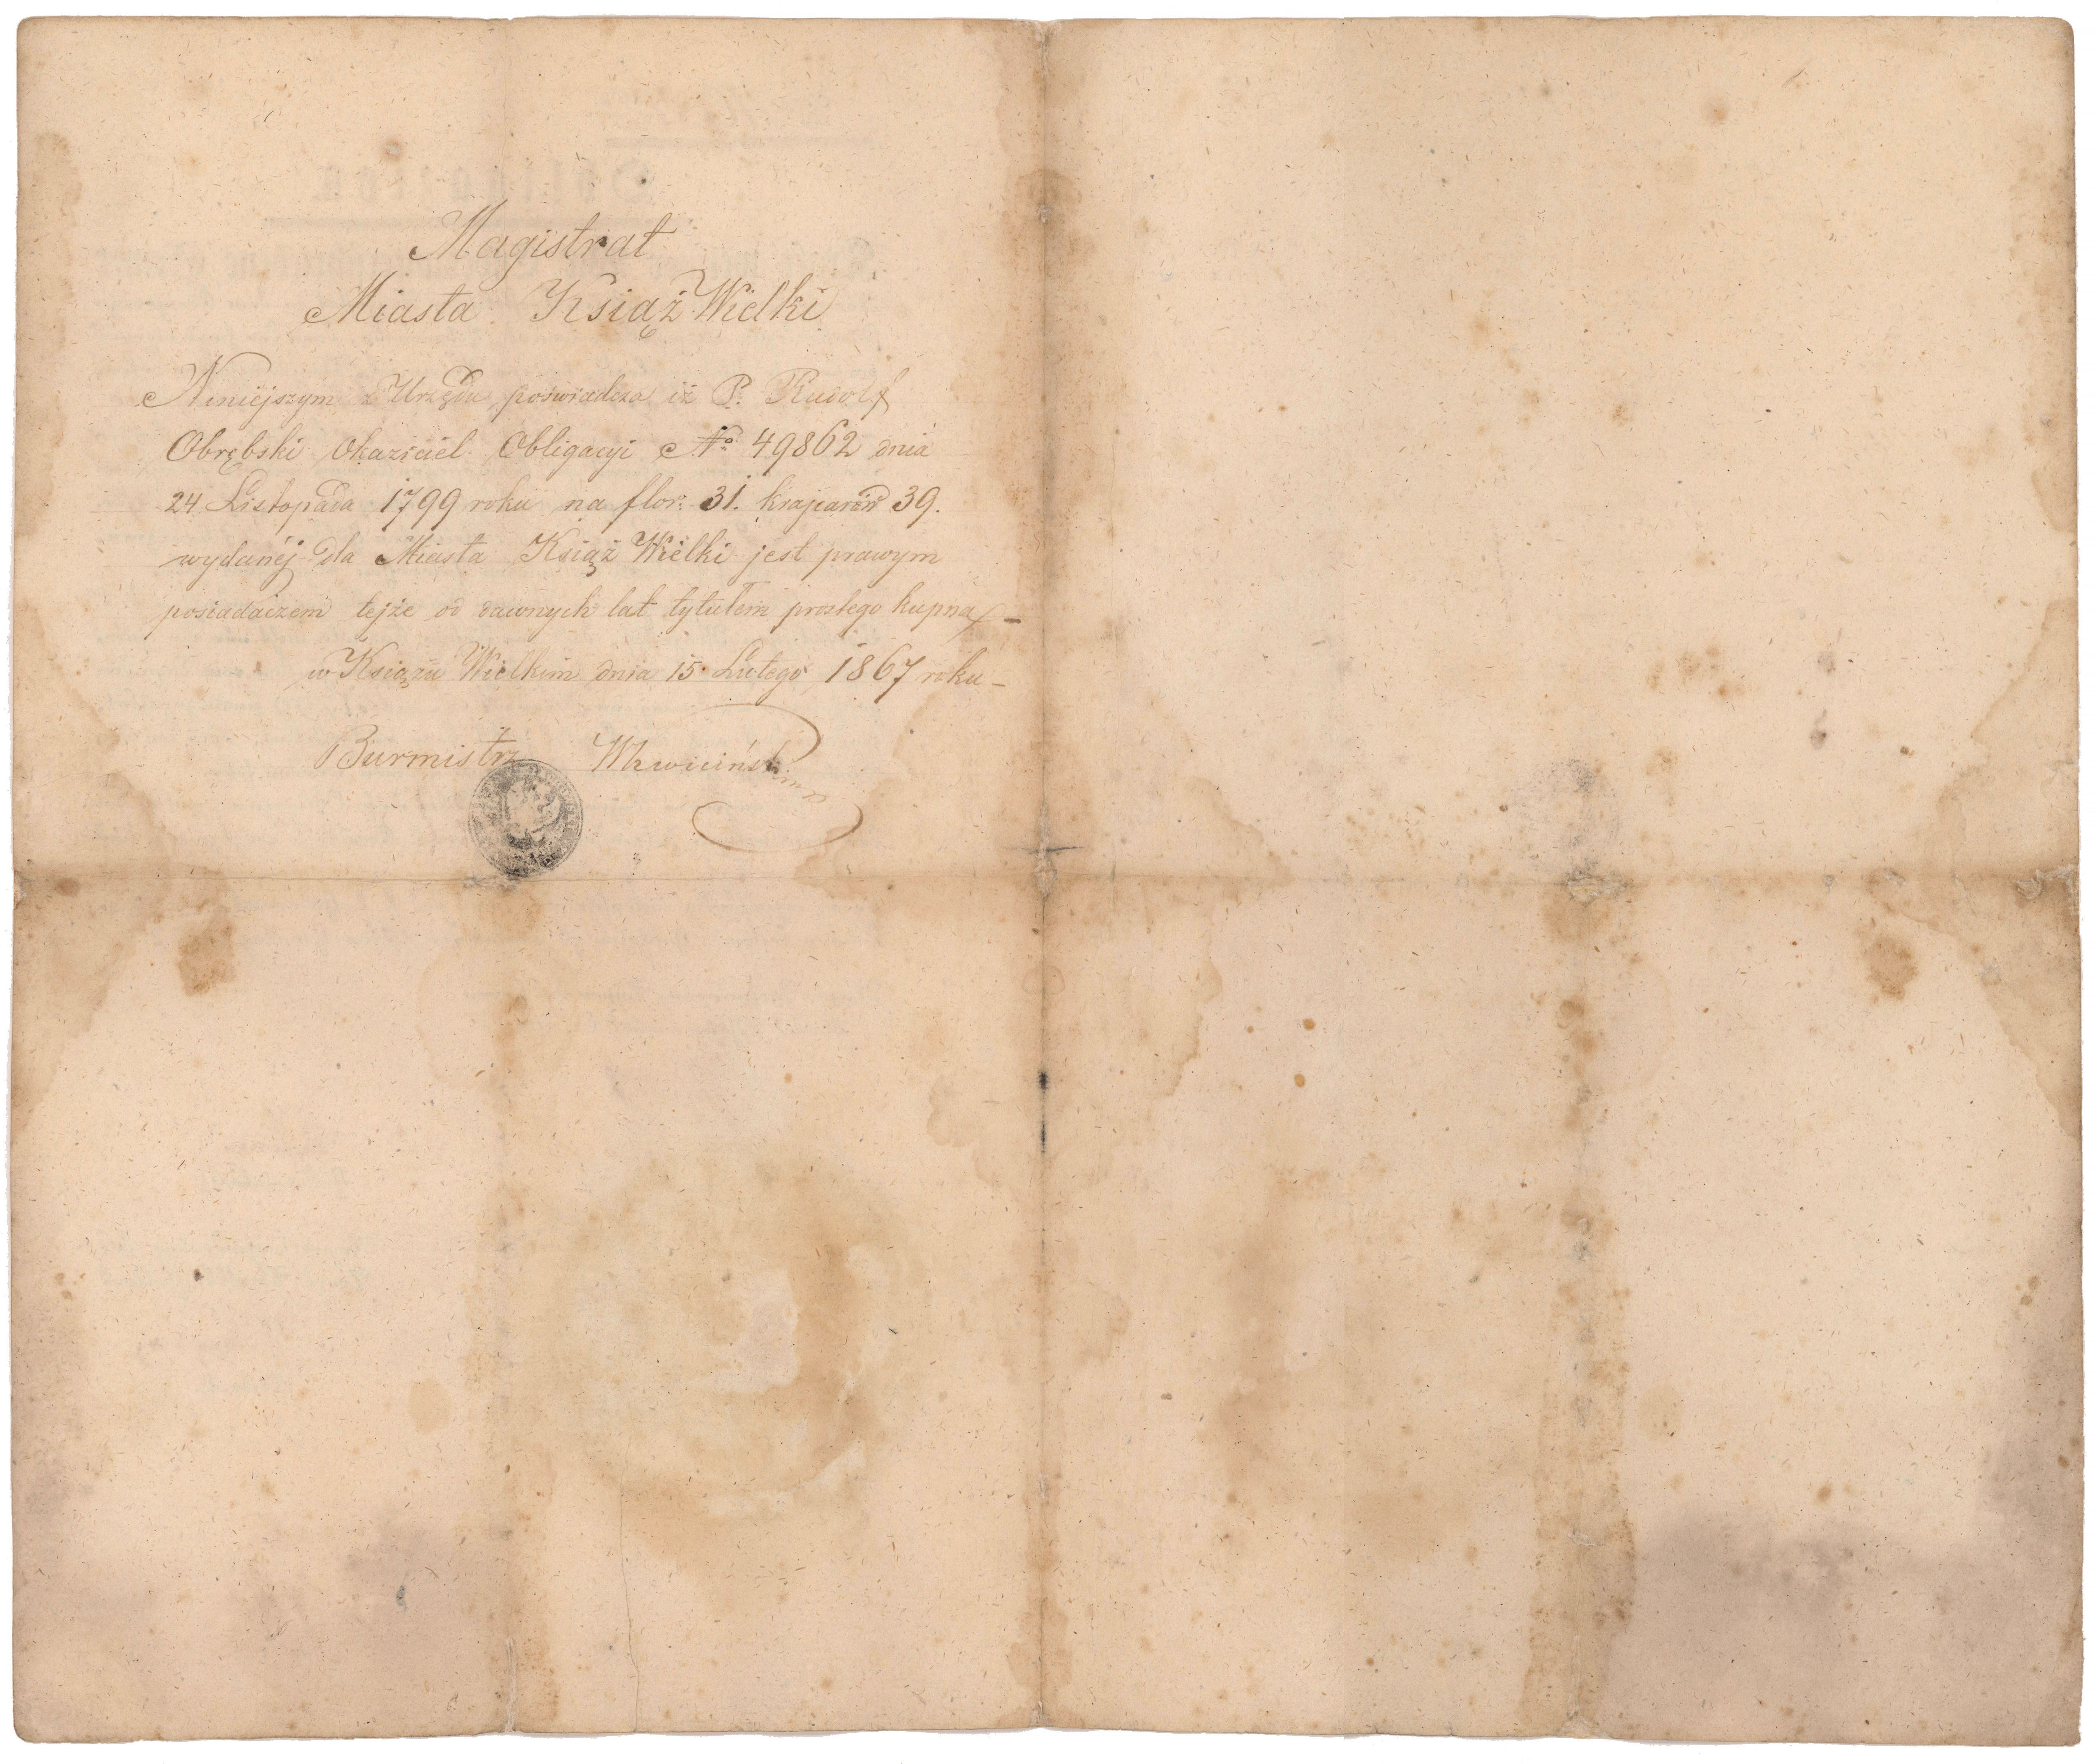 Magistrat
Miasta Książ Wielki
Niniejszym z Urzędu poświadcza iż P. Rudolf
Obrębski Okaziciel Obligacyi No. 49862 dnia
24 Listopada 1799 roku na flor: 31. krajcarów 39.
wydanéj dla Miasta Książ Wielki jest prawym
posiadaczem tejże od dawnych lat tytułem prostego kupna
w Książu Wielkim dnia 15 Lutego 1867 roku
Burmistrz